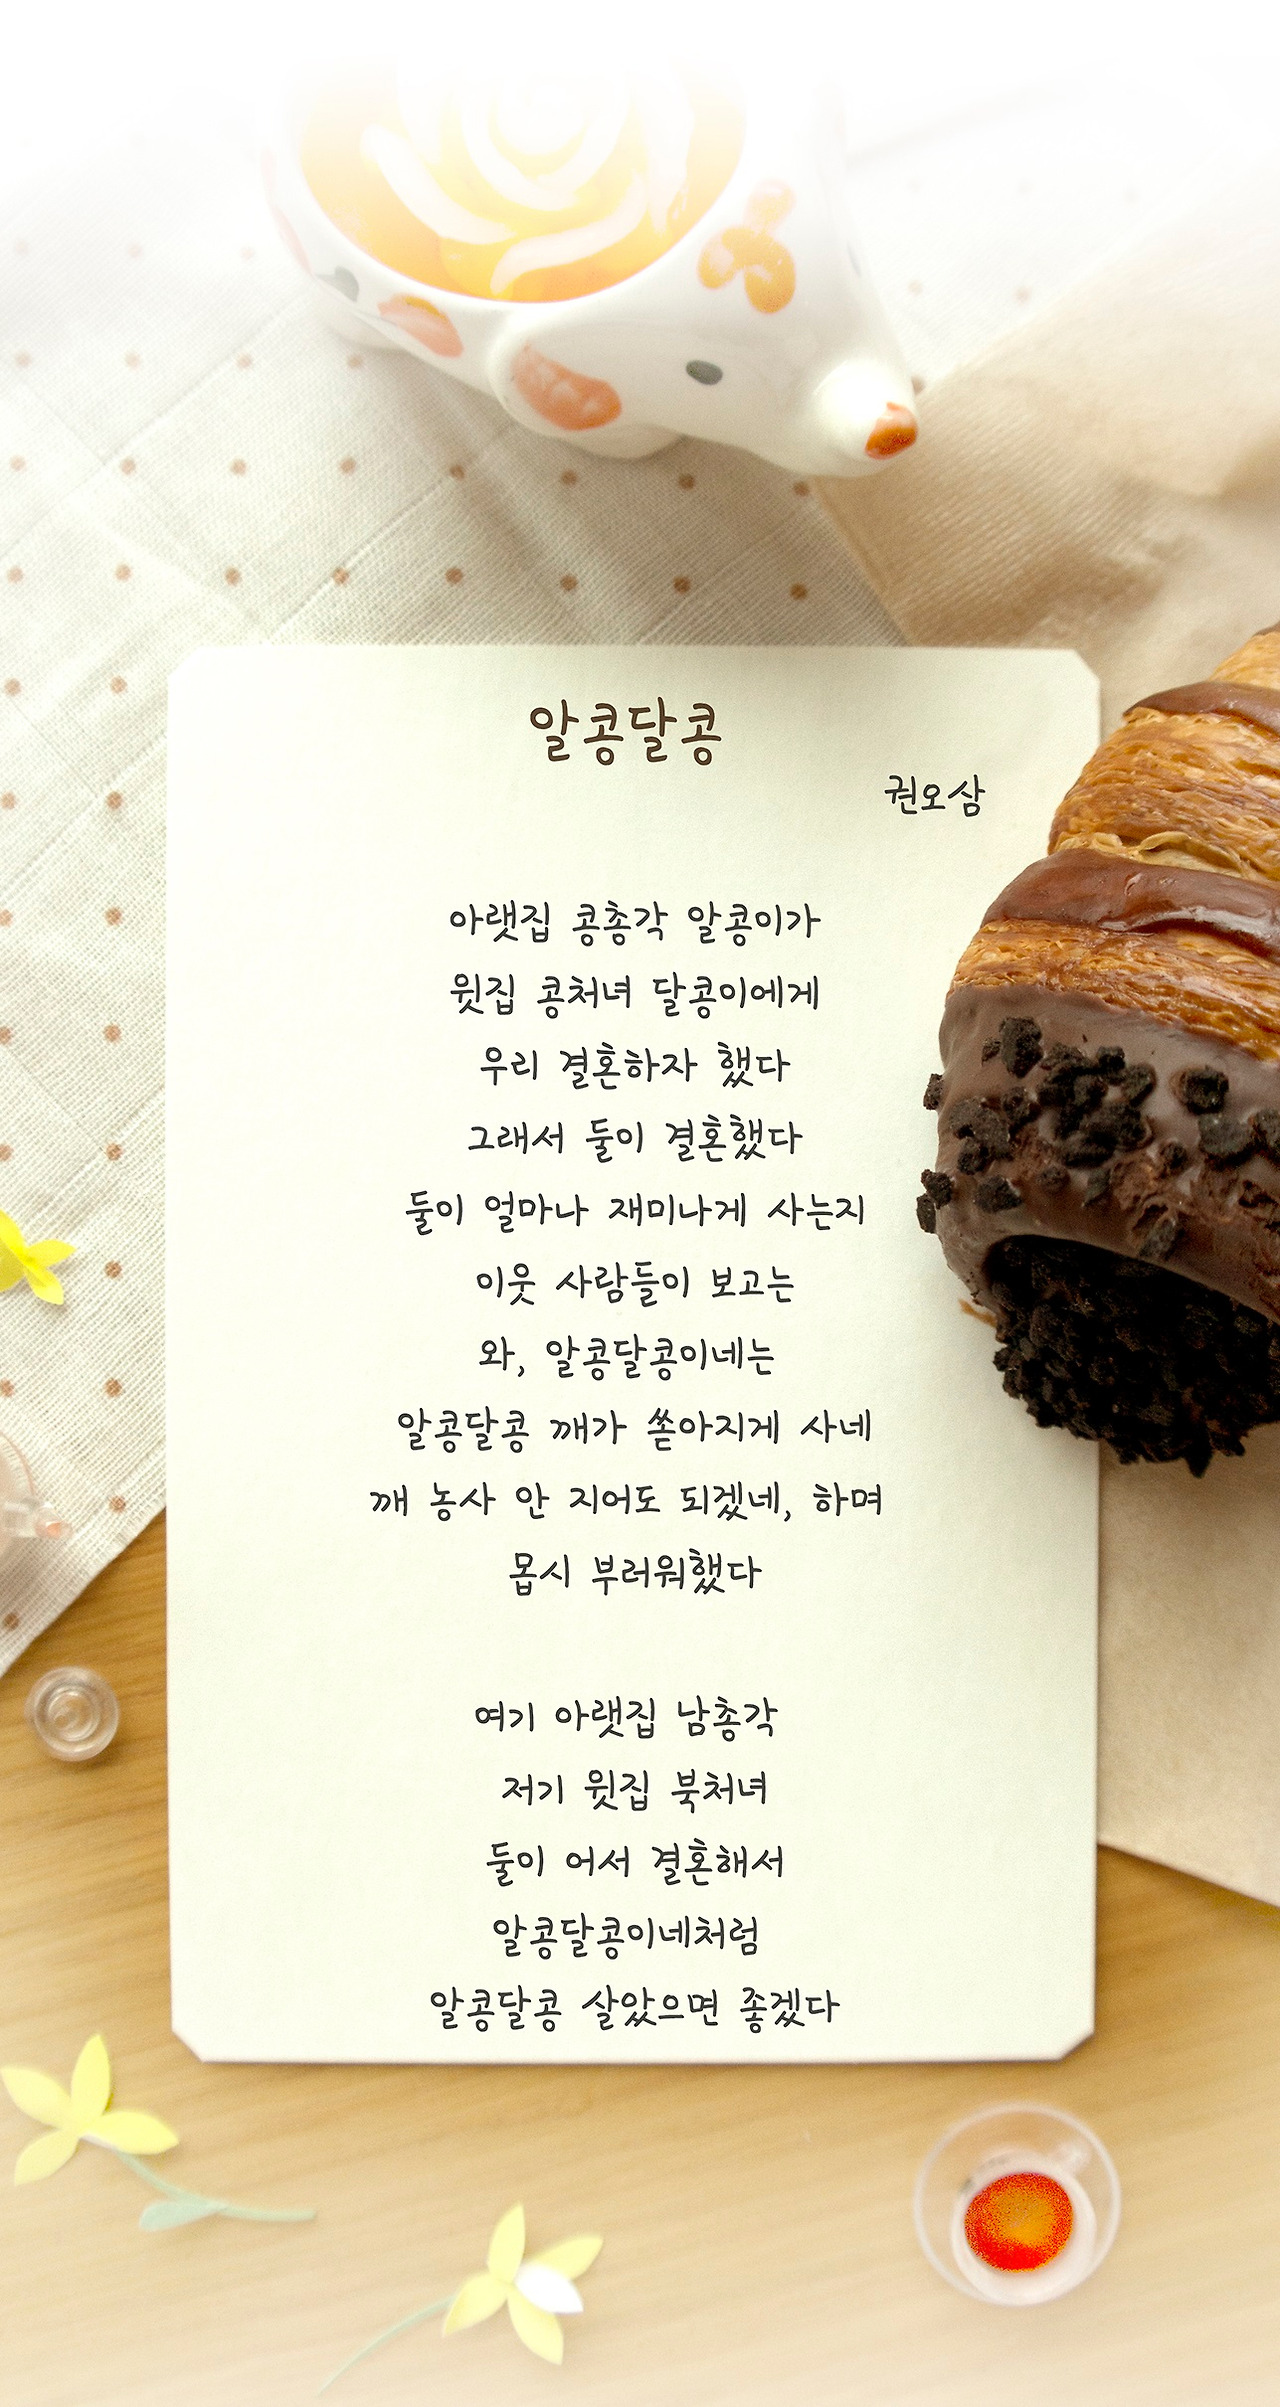 알콩달콩
권오삼
아랫집 콩총각 알콩이가
윗집 콩처녀 달콩이에게
우리 결혼하자 했다
그래서 둘이 결혼했다
둘이 얼마나 재미나게 사는지
이웃 사람들이 보고는
와, 알콩달콩이네는
알콩달콩 깨가 쏟아지게 사네
깨 농사 안 지어도 되겠네, 하며
몹시 부러워했다
여기 아랫집 남총각
저기 윗집 북처녀
둘이 어서 결혼해서
알콩달콩이네처럼
알콩달콩 살았으면 좋겠다